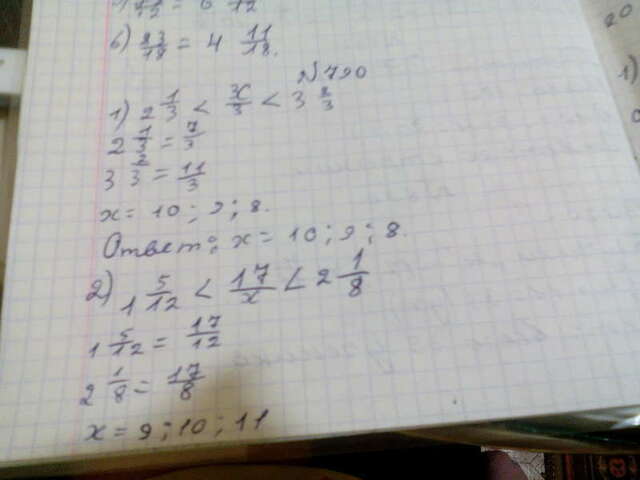 6) 83/18 = 4 11/18.
№790
1) 2 1/3 < x/3 < 3 2/3
2 1/3 = 7/3
3 2/3 = 11/3
x = 10; 9; 8.
Ответ: x = 10; 9; 8.
2) 1 5/12 < 17/x < 2 1/8
1 5/12 = 17/12
2 1/8 = 17/8
x = 9; 10; 11
20
1)